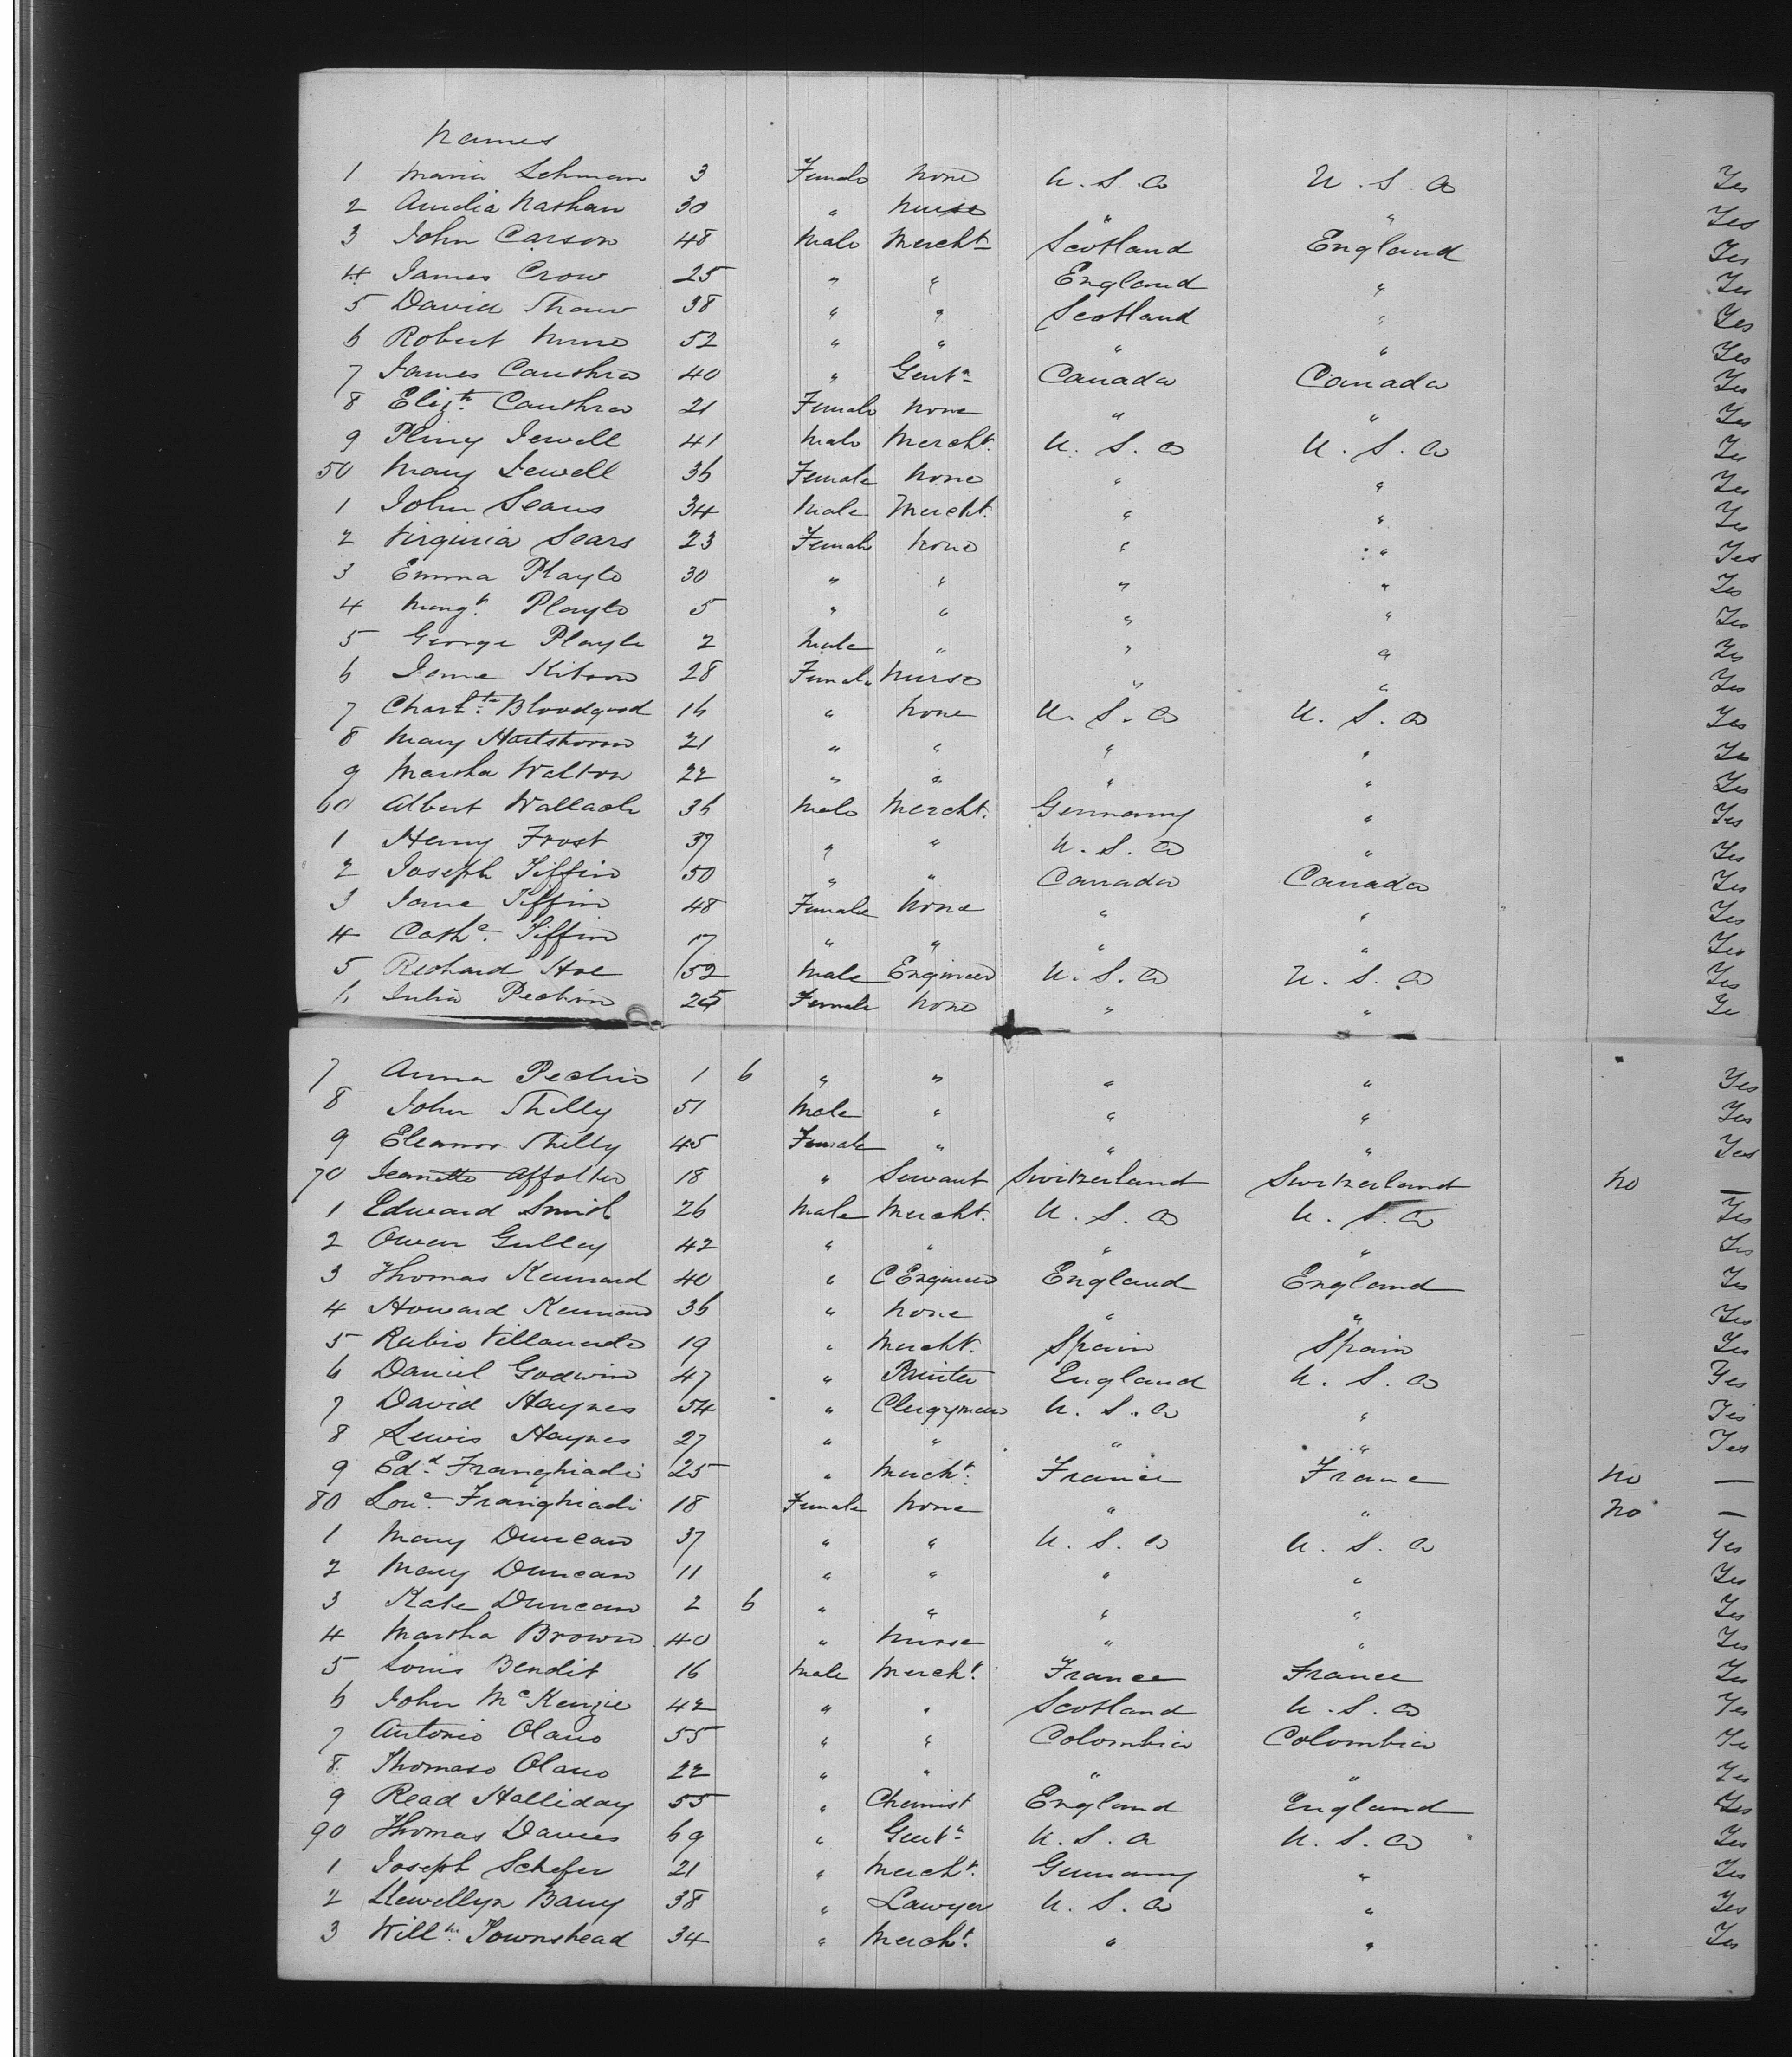 Names
1 Maria Lehman 3 Female None U.S.A U.S.A Yes
2 Amelia Nathan 30 " Nurse " " Yes
3 John Carson 48 Male Mercht Scotland England Yes
4 James Crow 25 " " England " Yes
5 David Shaw 38 " " Scotland " Yes
6 Robert 52 " " " " Yes
7 James Cauthra 40 " Gentn Canada Canada Yes
8 Elizth Cauthra 21 Female None " " Yes
9 Pliny Jewell 41 Male Mercht. U.S.A U.S.A Yes
50 Mary Jewell 36 Female None " " Yes
1 John Sears 34 Male Mercht. " " Yes
2 Virginia Sears 23 Female None " " Yes
3 Emma Playle 30 " " " " Yes
4 Margt. Playle 5 " " " " Yes
5 George Playle 2 Male " " " Yes
6 Jane Kitson 28 Female Nurse " " Yes
7 Chartte. Bloodgood 16 " None U.S.A U.S.A Yes
8 Mary Hartshorne 21 " " " " Yes
9 Martha Walton 22 " " " " Yes
60 Albert Wallach 36 Male Mercht. Germany " Yes
1 Henry Frost 37 " " U.S.A " Yes
2 Joseph Tiffin 50 " " Canada Canada Yes
3 Jane Tiffin 48 Female None " " Yes
4 Cathe. Tiffin 17 " " " " Yes
5 Richard Hoe 52 Male Engineer U.S.A U.S.A Yes
6 Julia Pechin 25 Female None " " Ye
7 Anna Pechin 1 6 " " " " Yes
8 John Thilly 51 Male " " " Yes
9 Eleanor Thilly 45 Female " " " Yes
70 Jeanette Affolter 18 " Servant Switzerland Switzerland No —
1 Edward Smith 26 Male Mercht. U.S.A U.S.A Yes
2 Owen Gulley 42 " " " " Yes
3 Thomas Kennard 40 " C Engineer England England Yes
4 Howard Kennard 36 " None " " Yes
5 Rubio Villaverde 19 " Mercht. Spain Spain Yes
6 Daniel Godwin 47 " England U.S.A Yes
7 David Haynes 54 " Clergyman U.S.A " Yes
8 Lewis Haynes 27 " " " " Yes
9 Edd. Franghiadi 25 " Mercht. France France No —
80 Franghiadi 18 Female None " " No —
1 Mary Duncan 37 " " U.S.A U.S.A Yes
2 Mary Duncan 11 " " " " Yes
3 Kate Duncan 2 6 " " " " Yes
4 Martha Brown 40 " Nurse " " Yes
5 Louis Bendit 16 Male Mercht. France France Yes
6 John McKenzie 42 " " Scotland U.S.A Yes
7 Antonio Olano 55 " " Colombia Colombia Yes
8 Thomaso Olano 22 " " " " Yes
9 Read Halliday 55 " Chemist England England Yes
90 Thomas Davies 69 " Gentn U.S.A U.S.A Yes
1 Joseph Schefer 21 " Mercht. Germany " Yes
2 Llewellyn Barry 38 " Lawyer U.S.A " Yes
3 Willm. Townshead 34 " Mercht. " " Yes